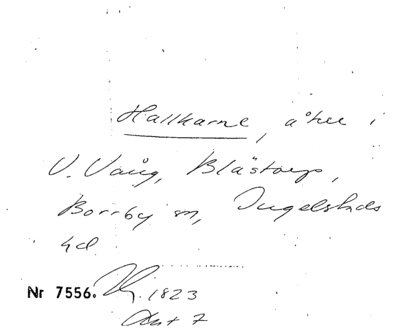 Hallkarne, åker i
V. Vång, Blästorp,
Borrby sn, Ingelstads
hd
Nr 7556. 1823
Akt 7